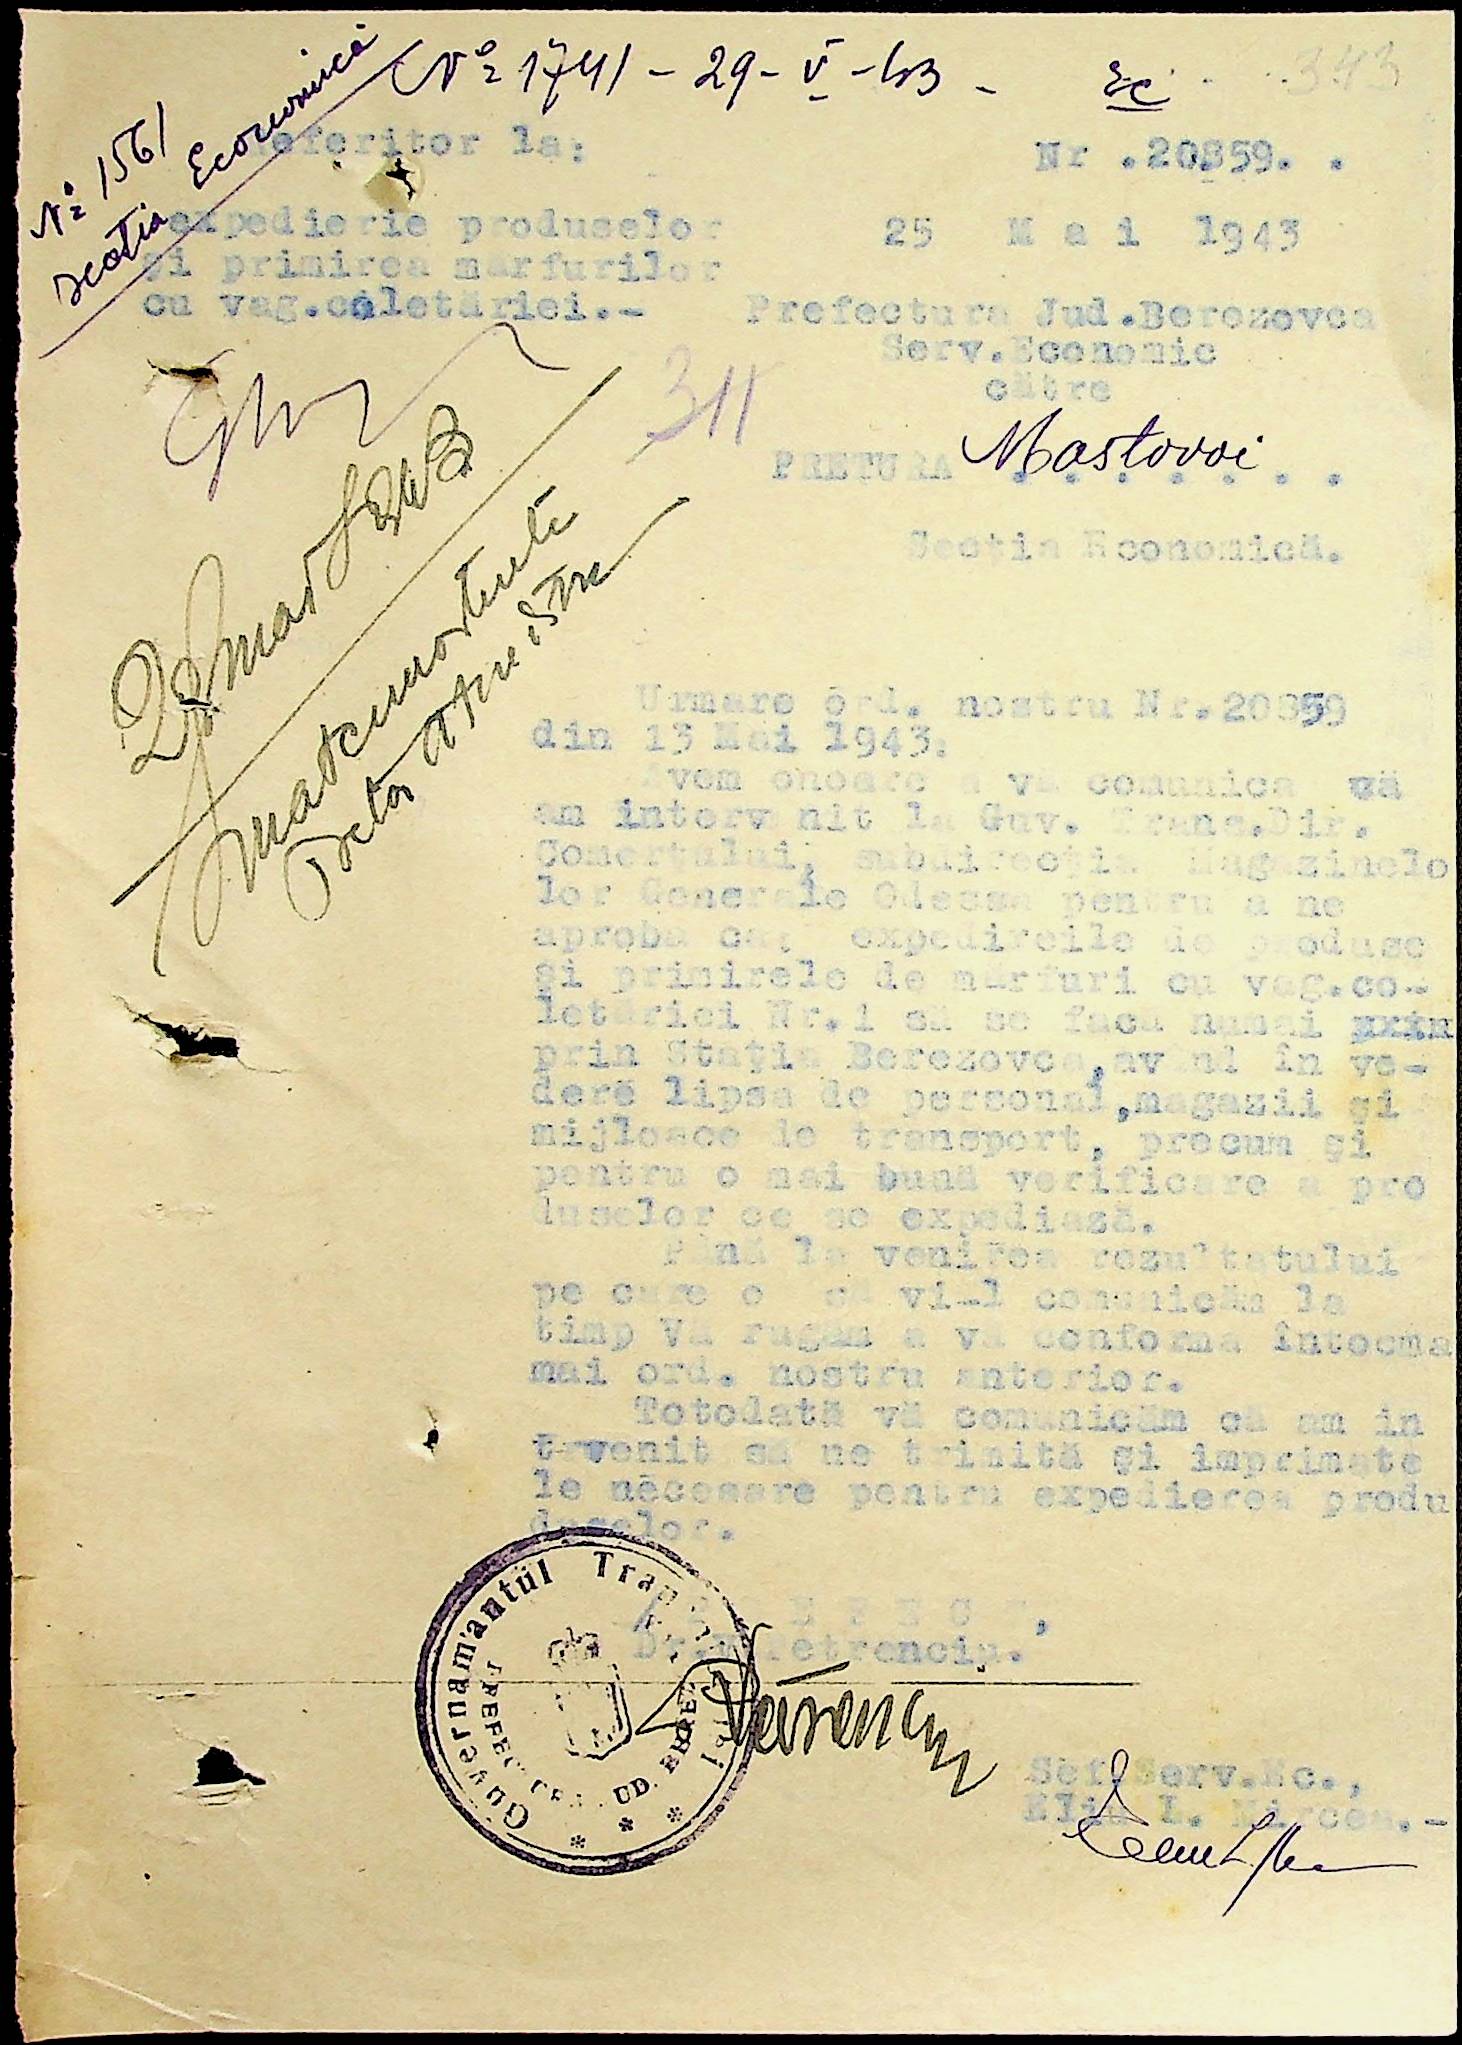 Nº 1741 - 29 - V - 43 - Ec
343
Nº 1561
Secția Economică
Referitor la:
Nr .20859. .
expedierie produselor
și primirea marfurilor
cu vag.coletăriei.-
25 Mai 1943
Prefectura Jud.Berezovca
Serv.Economic
către
311
PRETURA Mastovoi
Secția Economică.
Urmare ord. nostru Nr.20859
din 13 Mai 1943.
Avem onoare a vă comunica că
am interv nit la Guv. Trans.Dir.
Comerțului, subdirecția Magazinelo
lor Generale Odessa pentru a ne
aproba ca, expedireile de produse
și primirele de mărfuri cu vag.co-
letăriei Nr.1 să se facă numai prin
prin Stația Berezovca,avînd în ve-
dere lipsa de personal,magazii și
mijloace de transport, precum și
pentru o mai bună verificare a pro
duselor ce se expediază.
Până la venirea rezultatului
pe care o să vi-l comunicăm la
timp Vă rugăm a vă conforma întocma
mai ord. nostru anterior.
Totodată vă comunicăm că am in
tervenit să ne trimită și imprimate
le necesare pentru expedierea produ
duselor.
PREFECT,
Dr. Petrenciu.
Guvernamantul Transnistriei
PREFECTURA JUD. BEREZ
Șef.Serv.Ec.,
Eliu L. Mircea.-